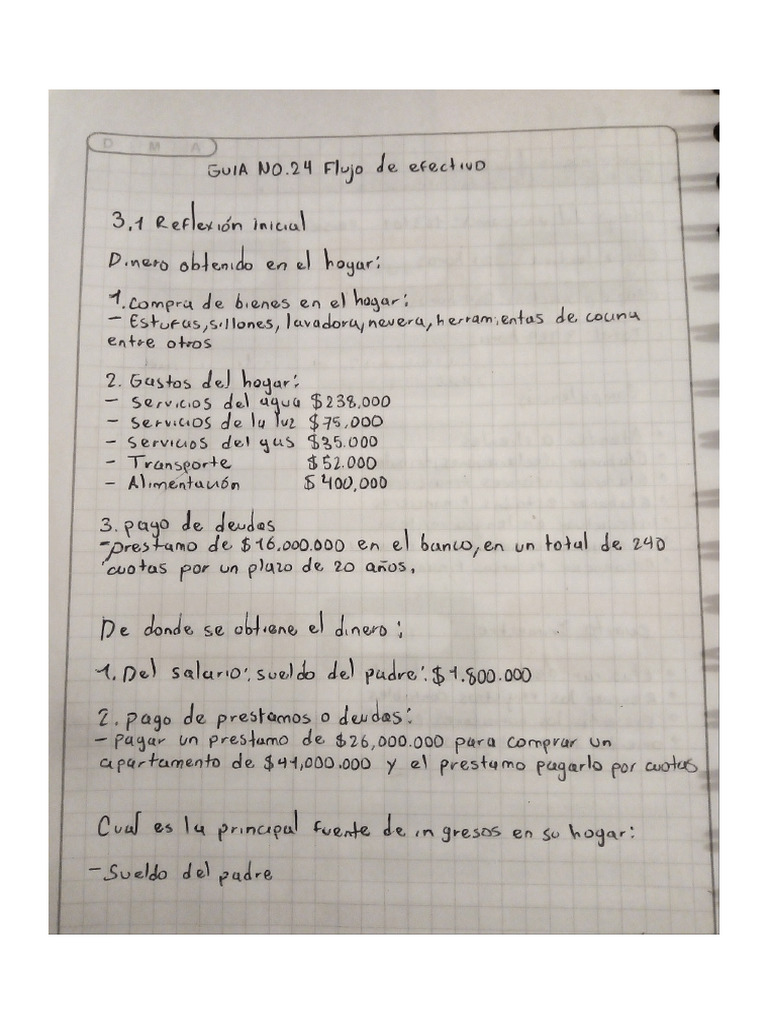 D M A
GUIA NO.24 Flujo de efectivo
3.1 Reflexión inicial
Dinero obtenido en el hogar:
1. compra de bienes en el hogar:
- Estufas, sillones, lavadora, nevera, herramientas de cocina
entre otros
2. Gastos del hogar:
- servicios del agua $238.000
- servicios de la luz $75.000
- servicios del gas $35.000
- Transporte $52.000
- Alimentación $400,000
3. pago de deudas
- prestamo de $16.000.000 en el banco, en un total de 240
cuotas por un plazo de 20 años.
De donde se obtiene el dinero:
1. Del salario: sueldo del padre: $1.800.000
2. pago de prestamos o deudas:
- pagar un prestamo de $26,000.000 para comprar un
apartamento de $41,000.000 y el prestamo pagarlo por cuotas
Cual es la principal fuente de ingresos en su hogar:
- Sueldo del padre